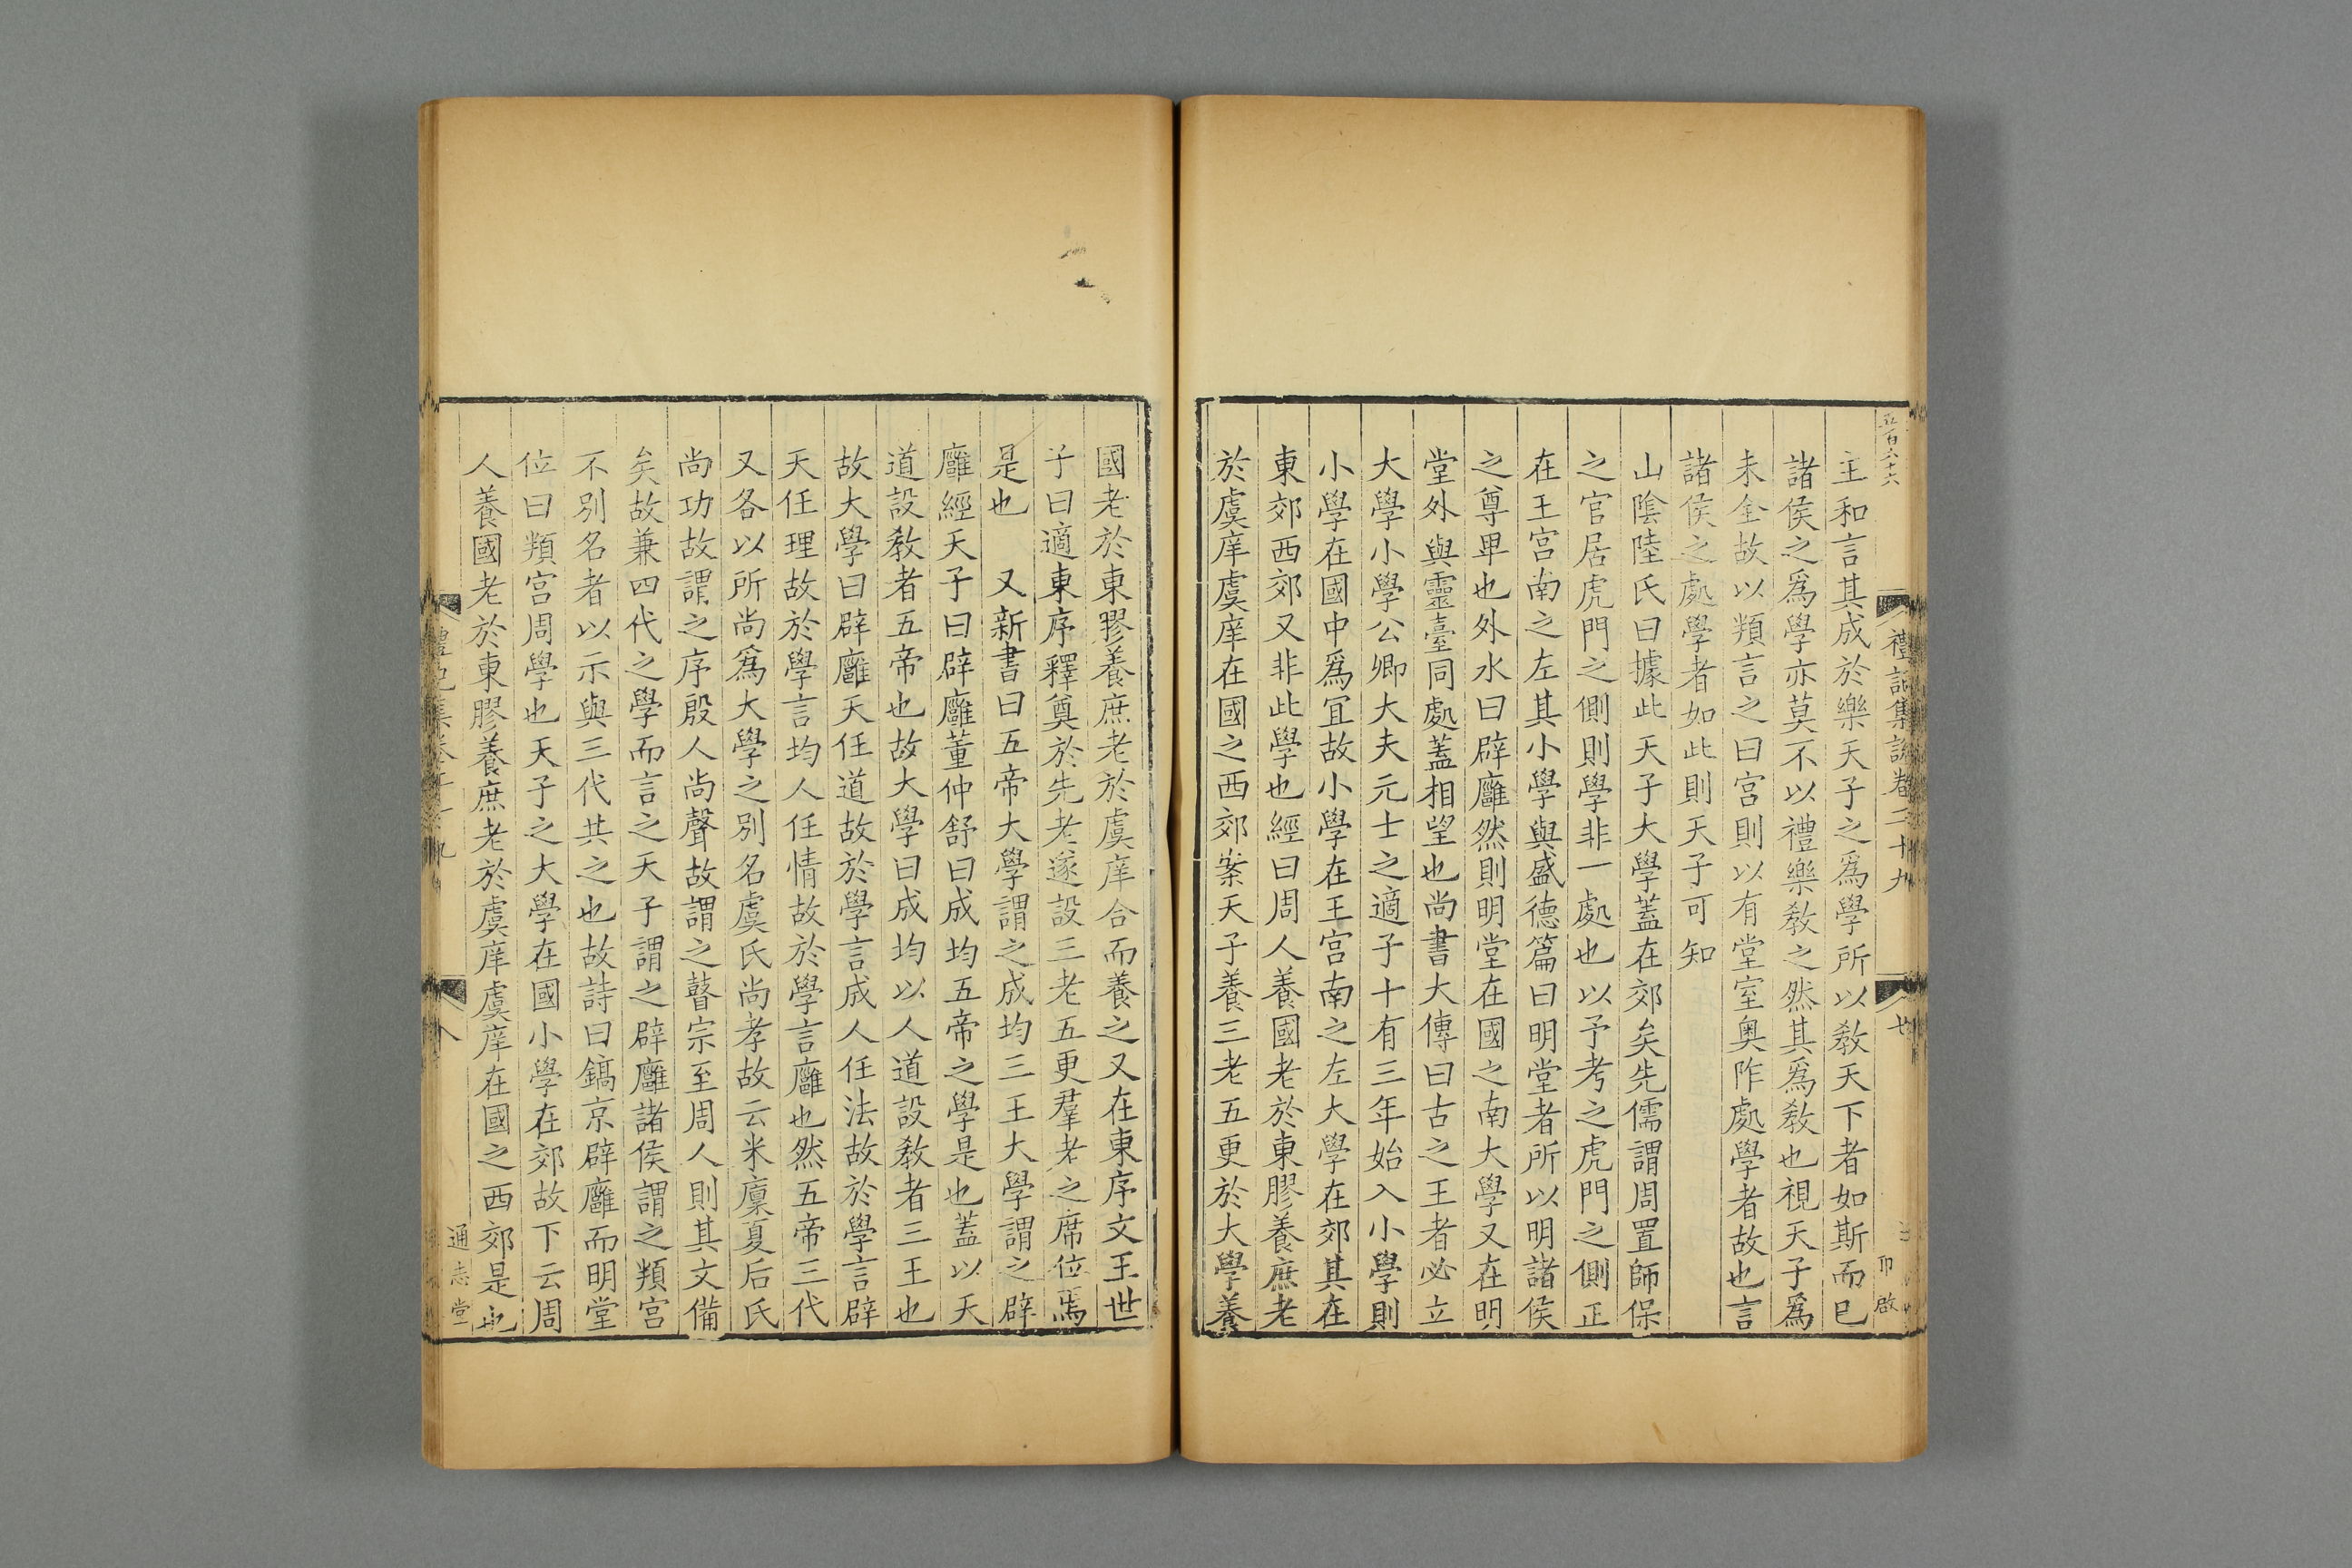 五百六十六
禮記集說卷二十九
廿
主和言其成於樂天子之爲學所以敎天下者如斯而已
諸侯之爲學亦莫不以禮樂敎之然其爲敎也視天子爲
未全故以頖言之曰宮則以有堂室奧阼處學者故也言
諸侯之處學者如此則天子可知
山陰陸氏曰據此天子大學蓋在郊矣先儒謂周置師保
之官居虎門之側則學非一處也以予考之虎門之側正
在王宮南之左其小學與盛德篇曰明堂者所以明諸侯
之尊卑也外水曰辟廱然則明堂在國之南大學又在明
堂外與靈臺同處蓋相望也尚書大傳曰古之王者必立
大學小學公卿大夫元士之適子十有三年始入小學則
小學在國中爲宜故小學在王宮南之左大學在郊其在
東郊西郊又非此學也經曰周人養國老於東膠養庶老
於虞庠虞庠在國之西郊案天子養三老五更於大學養
國老於東膠養庶老於虞庠合而養之又在東序文王世
子曰適東序釋奠於先老遂設三老五更羣老之席位焉
是也　又新書曰五帝大學謂之成均三王大學謂之辟
廱經天子曰辟廱董仲舒曰成均五帝之學是也蓋以天
道設敎者五帝也故大學曰成均以人道設敎者三王也
故大學曰辟廱天任道故於學言成人任法故於學言辟
天任理故於學言均人任情故於學言廱也然五帝三代
又各以所尚爲大學之別名虞氏尚孝故云米廩夏后氏
尚功故謂之序殷人尚聲故謂之瞽宗至周人則其文備
矣故兼四代之學而言之天子謂之辟廱諸侯謂之頖宮
不別名者以示與三代共之也故詩曰鎬京辟廱而明堂
位曰頖宮周學也天子之大學在國小學在郊故下云周
人養國老於東膠養庶老於虞庠虞庠在國之西郊是也
通志堂